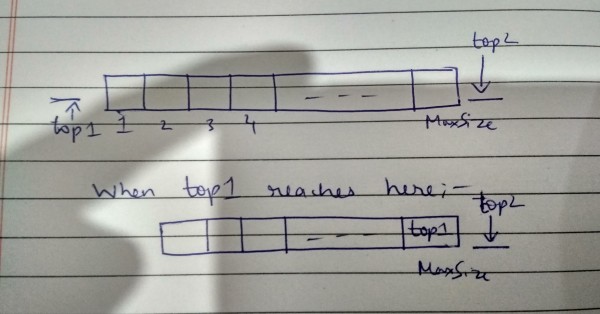 top2
top1 1 2 3 4 MaxSize
When top1 reaches here;-
top2
top1
MaxSize